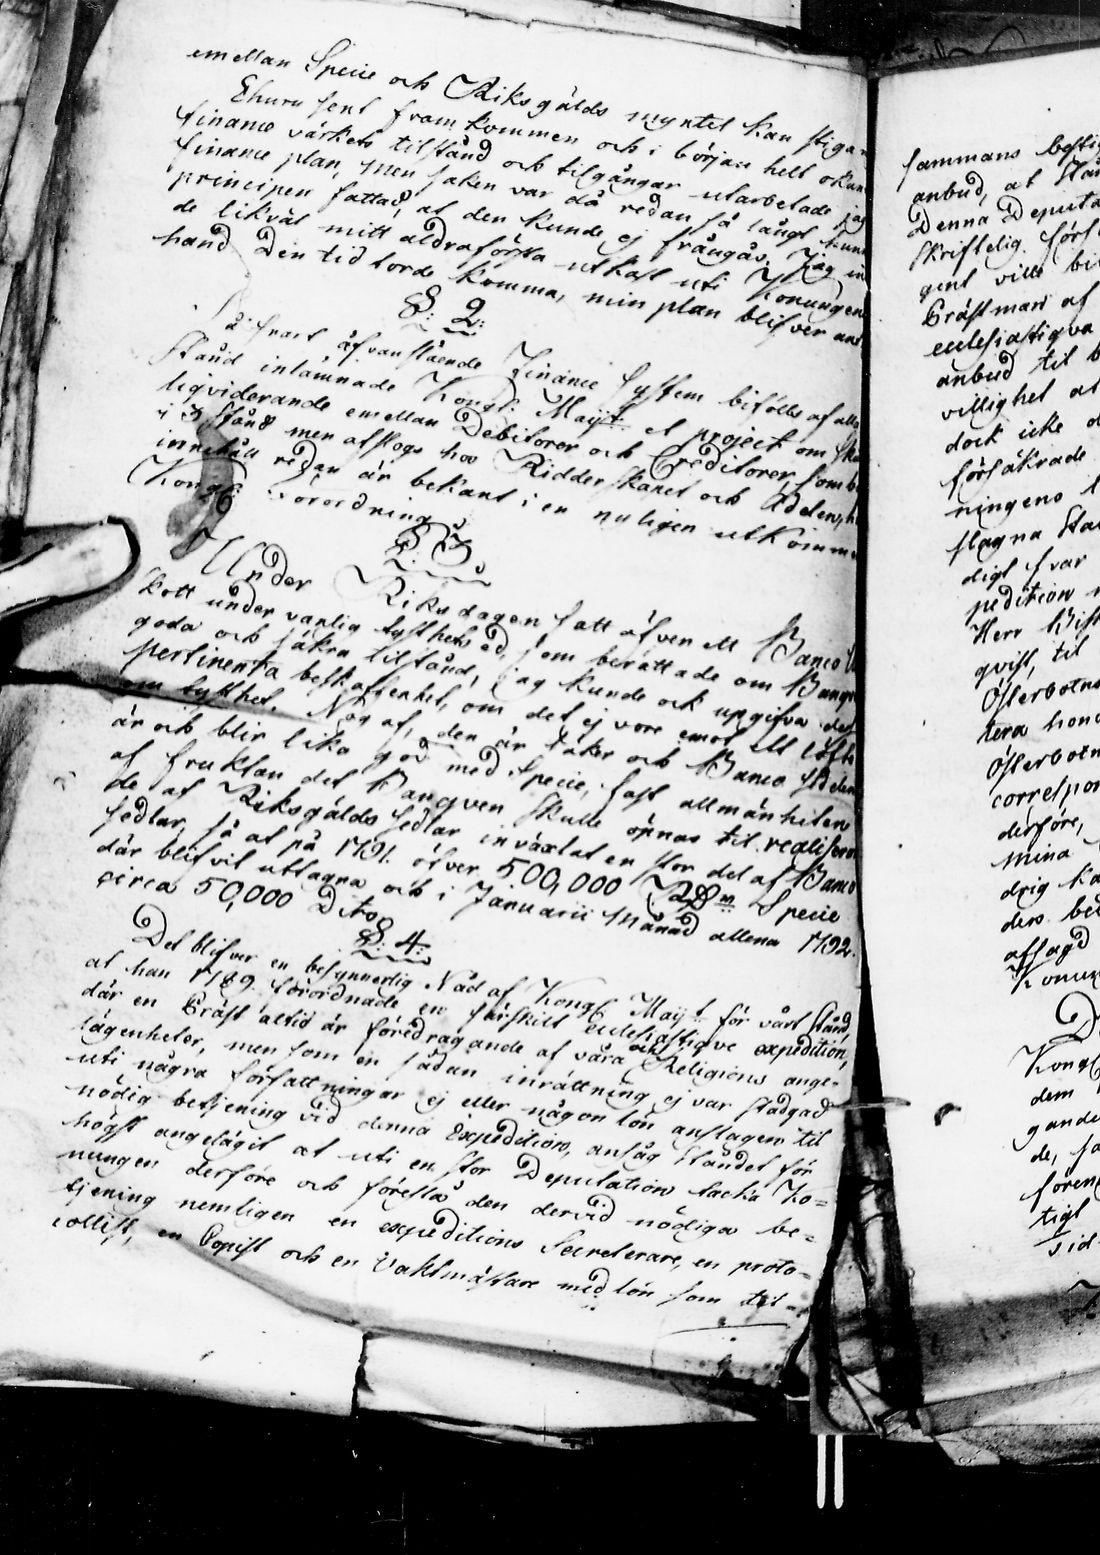 emellan Specie och Riksgälds myntet kan stiga
Ehuru sent framkommen och i början helt okun
finance värkets tilstånd och tilgångar utarbetade jag
finance plan, men saken var då redan så långt kum
principen fattad, at den kunde ej frångås. Jag in
de likväl mitt aldraförsta utkast uti Konungens
hand Den tid torde komma, min plan blifver ant
§: 2:
Så snart åfvanstående Finance system bifölls af alla
stånd inlämnade Kongl: Maij:t et project om
liqviderande emellan Debitorer och Creditorer, som
i 3 stånd men afslogs hos Ridderskapet och Adelen, h
innehåll redan är bekant i en nyligen utkomm
Kongl: Förordning
§: 3
Under Riksdagen satt äfven ett Banco U
skott under vanlig tysthets ed, som berättade om Banqu
goda och säkra tilstånd, Jag kunde ock upgifva dess
pertinenta beskaffenhet, om det ej vore emot ett löfte
om tysthet. Nog af, den är säker och Banco sedelen
är och blir lika god med Specie, fast allmänheten
af fruktan det Banqven skulle öpnas til realiseran
de af Riksgälds sedlar inväxlat en stor del af Banco
sedlar, så at på 1791. öfver 500,000 Rdr Specie
där blifvit uttagna och i Januarii Månad allena 1792.
circa 50,000 Dito.
§: 4:
Det blifver en besynnerlig Nåd af Kongl Maij:t för vårt stånd,
at han 1789. förordnade en särskilt ecclesiastique expedition,
där en Präst altid är föredragande af våra och Religions ange-
lägenheter, men som en sådan inrättning ej var stadgad
uti några författningar ej eller någon lön anslagen til
nödig betjening vid denna Expedition, ansåg ståndet för
högst angelägit at uti en stor Deputation tacka Ko-
nungen derföre och förestå den dervid nödiga be-
tjening nemligen en expeditions Secreterare, en proto-
collist, en Copist och en Vaktmästare med lön som til-
sammans bestig
anbud, at Stån
Denna Deputa
skriftelig förs
gent ville bi
Präst man af
ecclesiastiqva
anbud til b
villighet at
dock icke
försäkrade
ningens
slagna Sta
digt svar
pedition
Herr Bisk
qvist, til
Österbotns
tera hono
Österbotn
correspon
derföre,
mina
drig ka
ders be
afsagd
Konun
Kongl
dem
gande
de, så
foren
tigt
sid